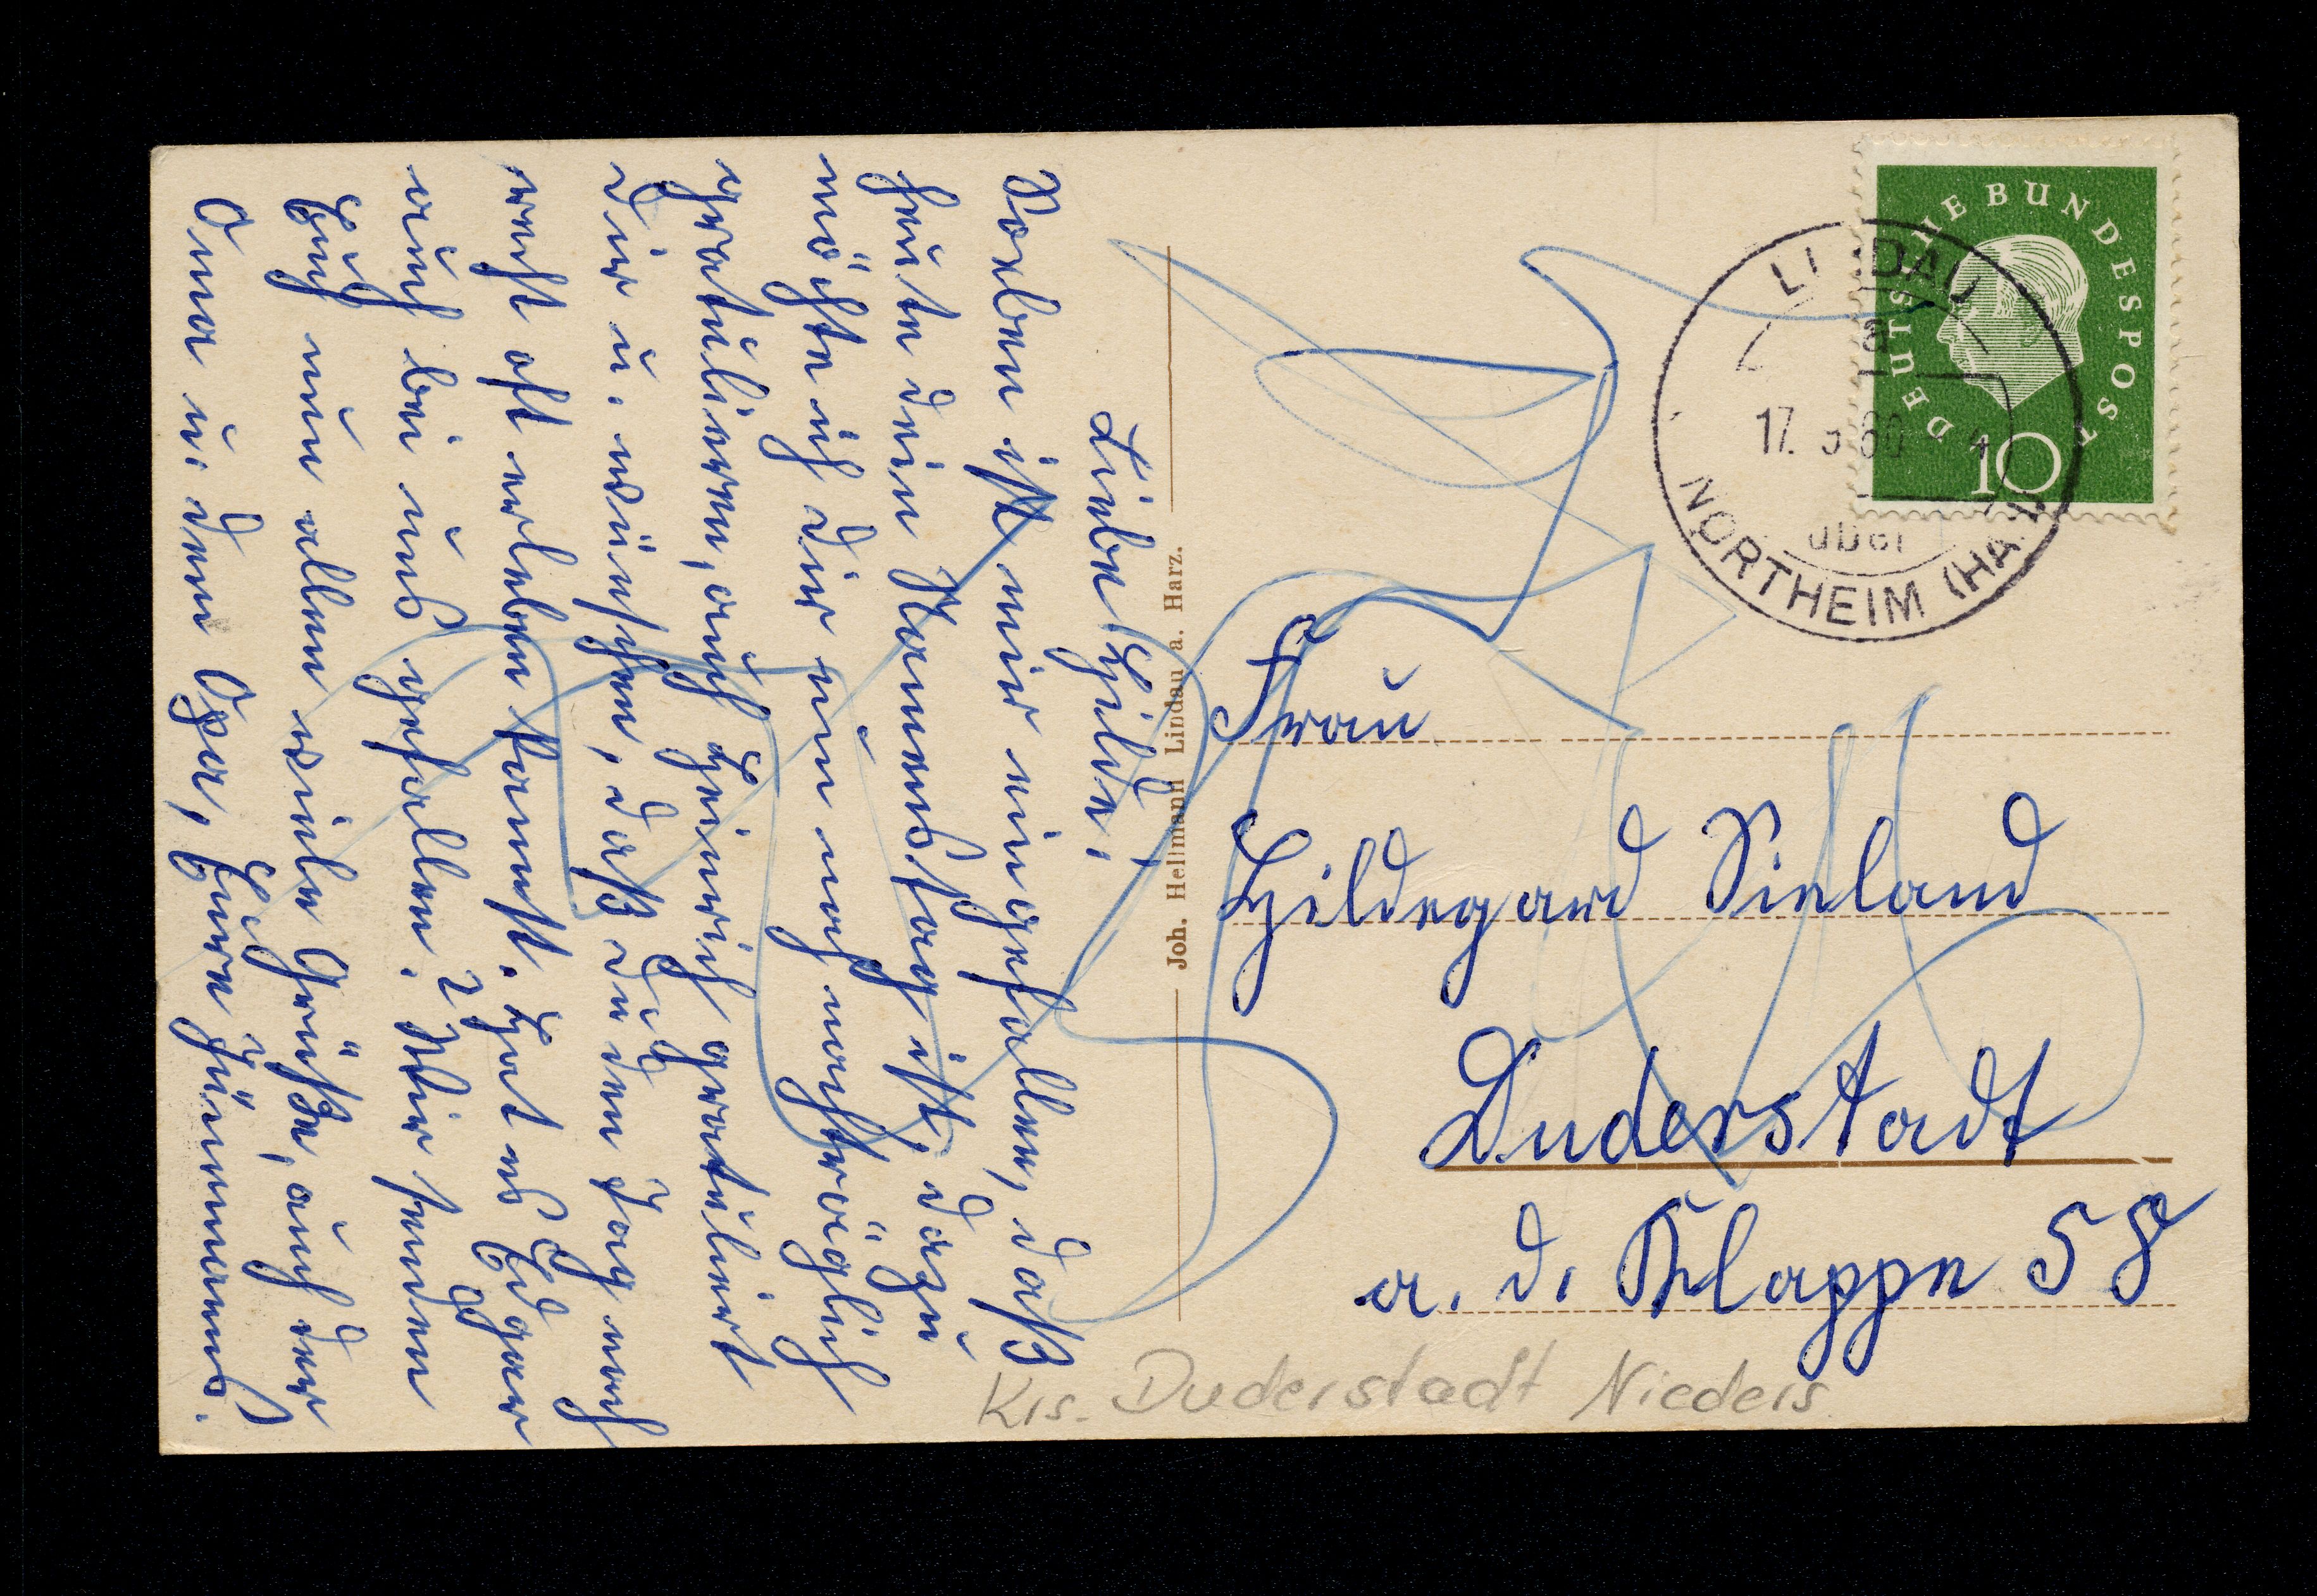 Liebe Hilde,
Soeben ist mir eingefallen, daß
heute dein Namenstag ist, dazu
möchte ich dir nun noch nachträglich
gratulieren, auch Heinrich gratuliert
dir u. wünschen, daß du den Tag noch
recht oft erleben kannst. Hat es Edgar
auch bei uns gefallen? Wir senden
Euch nun allen viele Grüße, auch der
Oma u. dem Opa, Eure
DEUTSCHE BUNDESPOST
10
LINDAU
a
17. 60
über
NORTHEIM (HAN
Joh. Hellmann Lindau a. Harz.
Frau
Hildegard Sieland
Duderstadt
a. d. Klappe 58
Krs. Duderstadt Nieders